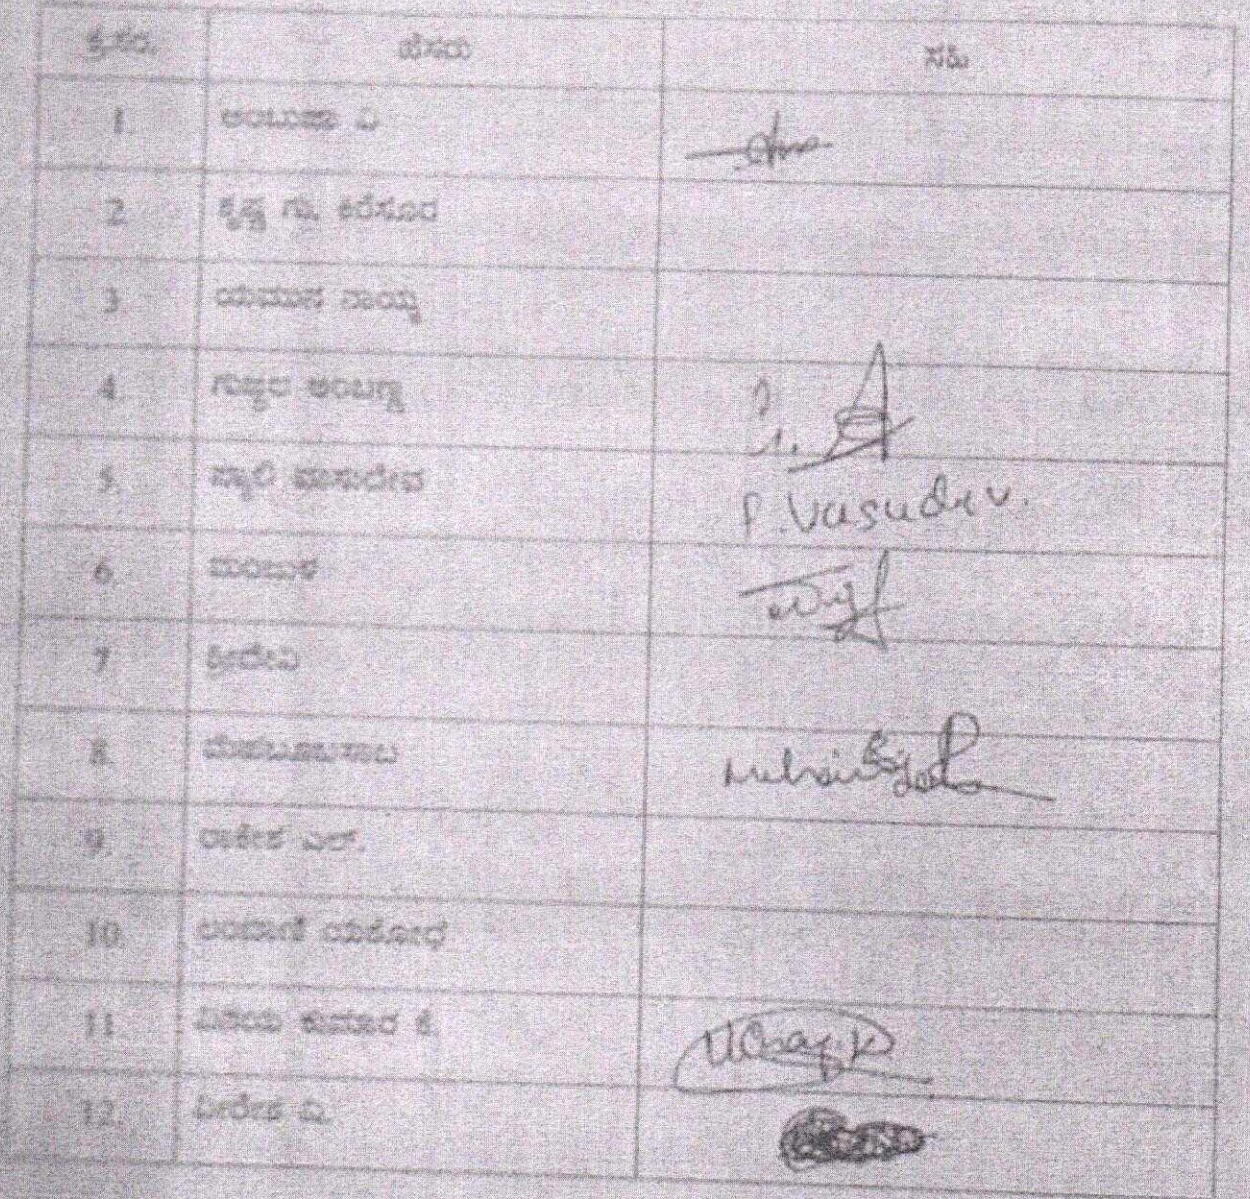 ಕ್ರ.ಸಂ. ಹೆಸರು ಸಹಿ
1. ಅಂಬುಜಾ ವಿ
2. ಕೃಷ್ಣ ಗು. ಕರೆಸೂರ
3. ಯಮುನ ನಾಯ್ಕ
4. ಗುಜ್ಜರ ಅಂಬಣ್ಣ
5. ಪ್ಯಾಟಿ ವಾಸುದೇವ P. Vasudev.
6. ಮಂಜುಳ
7. ಶ್ರೀದೇವಿ
8. ಮೆಹಬೂಬಸಾಬ
9. ರಾಕೇಶ ಎಲ್.
10. ಲಂಬಾಣಿ ಯಶೋಧ
11. ವಿಜಯ ಕುಮಾರ ಕೆ. Vijay.K
12. ವೀರೇಶ ವಿ.